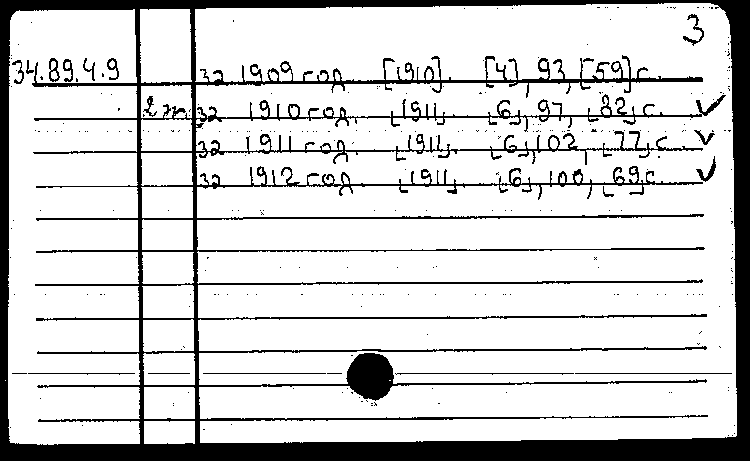 3
34.89.4.9 за 1909 год. [1910]. [4], 93, [59] с.
2 эк. за 1910 год. [1911]. [6], 97, [82] с. ✓
за 1911 год. [1911]. [6], 102, [77] с. ✓
за 1912 год. [1911]. [6], 100, [69] с. ✓